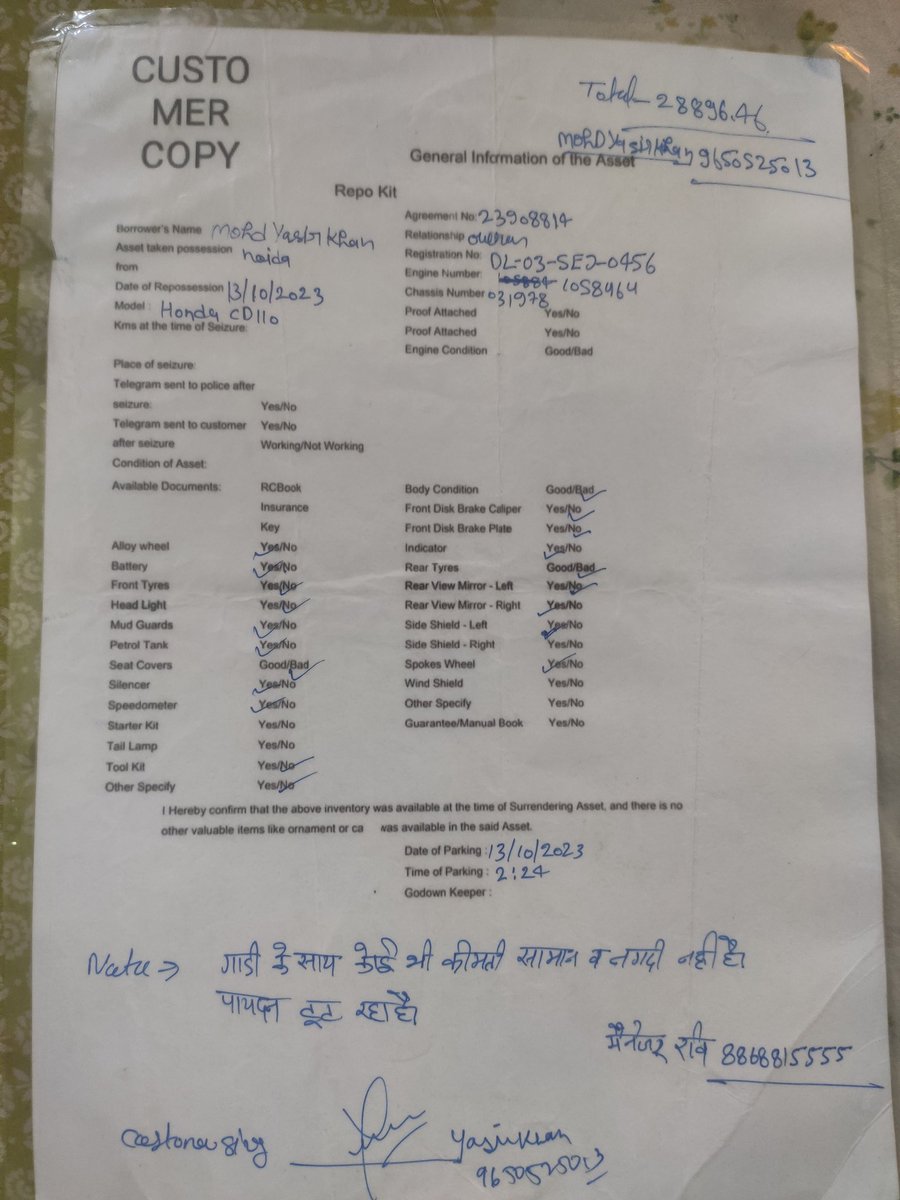 CUSTO
MER
COPY
Total- 28896.46
MohD Yasir Khan 9650525013
General Information of the Asset
Repo Kit
Borrower's Name Mohd Yasir Khan
Asset taken possession noida
from
Date of Repossession 13/10/2023
Model : Honda CD110
Kms at the time of Seizure:
Agreement No: 23908814
Relationship
Registration No: DL-03-SEJ-0456
Engine Number: 1058464
Chassis Number 031978
Proof Attached Yes/No
Proof Attached Yes/No
Engine Condition Good/Bad
Place of seizure:
Telegram sent to police after
seizure: Yes/No
Telegram sent to customer Yes/No
after seizure Working/Not Working
Condition of Asset:
Available Documents: RCBook
Insurance
Key
Alloy wheel Yes/No
Battery Yes/No
Front Tyres Yes/No
Head Light Yes/No
Mud Guards Yes/No
Petrol Tank Yes/No
Seat Covers Good/Bad
Silencer Yes/No
Speedometer Yes/No
Starter Kit Yes/No
Tail Lamp Yes/No
Tool Kit Yes/No
Other Specify Yes/No
Body Condition Good/Bad
Front Disk Brake Caliper Yes/No
Front Disk Brake Plate Yes/No
Indicator Yes/No
Rear Tyres Good/Bad
Rear View Mirror - Left Yes/No
Rear View Mirror - Right Yes/No
Side Shield - Left Yes/No
Side Shield - Right Yes/No
Spokes Wheel Yes/No
Wind Shield Yes/No
Other Specify Yes/No
Guarantee/Manual Book Yes/No
I Hereby confirm that the above inventory was available at the time of Surrendering Asset, and there is no
other valuable items like ornament or ca was available in the said Asset.
Date of Parking : 13/10/2023
Time of Parking : 2:24
Godown Keeper :
गाडी के साथ कोई भी कीमती सामान व नगदी नहीं है।
पायदन टूट रहा है।
मैनेजर रवि 8868815555
Yasir Khan
9650525013